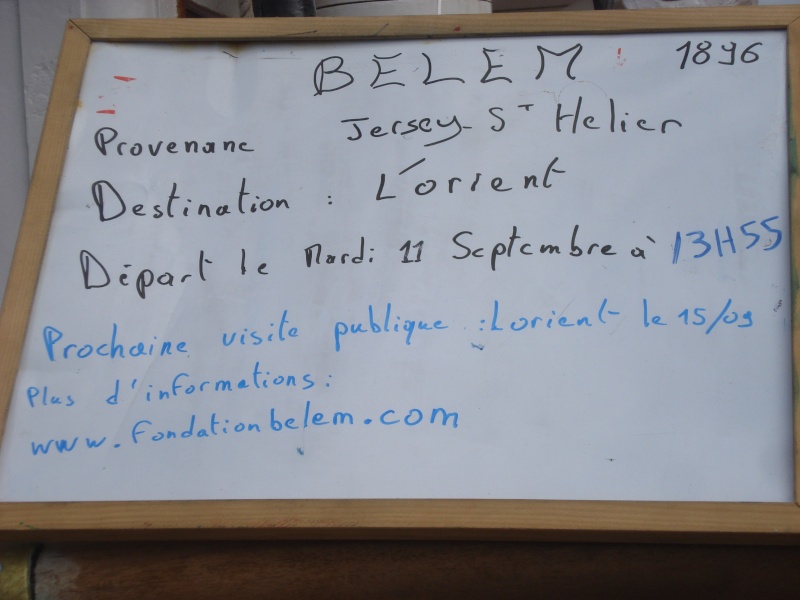 BELEM 1896
Provenanc Jersey- St Helier
Destination : L'orient
Départ le Mardi 11 Septembre à 13H55
Prochaine visite publique : Lorient le 15/09
Plus d'informations :
www.fondationbelem.com